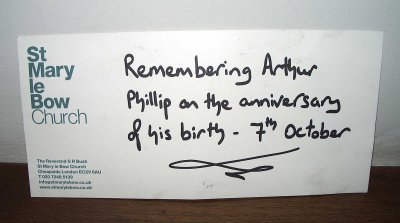 St
Mary
le
Bow
Church
Remembering Arthur
Phillip on the anniversary
of his birth - 7th October
The Reverend G R Bush
St Mary le Bow Church
Cheapside London EC2V 6AU
T 020 7248 5139
info@stmarylebow.co.uk
www.stmarylebow.co.uk